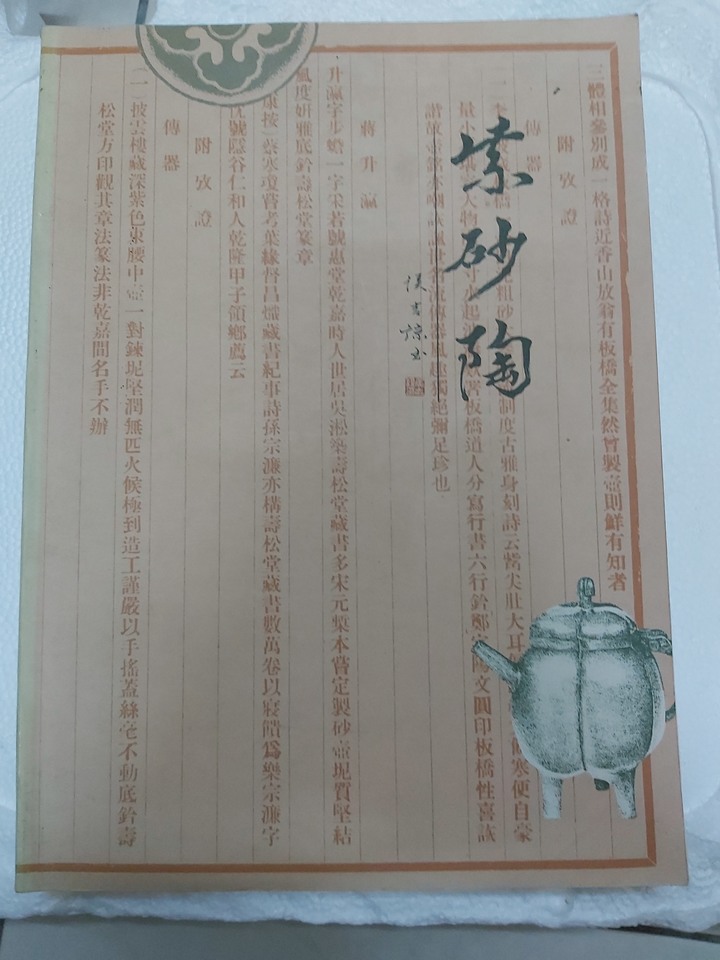 紫砂陶
侯吉諒書
三體相參別成一格詩近香山放翁有板橋全集然曾製壺則鮮有知者
附攷證
傳器
制度古雅身刻詩云嘴尖肚大耳
寒便自豪
板橋道人分寫行書六行鈐鄭
陽文圓印板橋性喜詼
獨絕彌足珍也
蔣升瀛
升瀛字步蟾一字采若號惠堂乾嘉時人世居吳淞築壽松堂藏書多宋元槧本嘗定製砂壺坭質堅結
風度妍雅底鈐壽松堂篆章
康按蔡寒瓊嘗考葉緣督昌熾藏書紀事詩孫宗濂亦構壽松堂藏書數萬卷以寢饋爲樂宗濂字
號隱谷仁和人乾隆甲子領鄉薦云
附攷證
傳器
(一)披雲樓藏深紫色束腰中壺一對鍊坭堅潤無匹火候極到造工謹嚴以手搖蓋絲毫不動底鈐壽
松堂方印觀其章法篆法非乾嘉間名手不辦